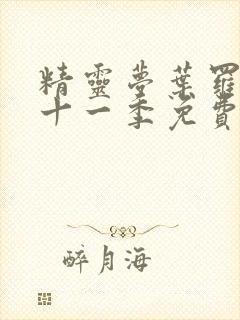 精靈夢葉羅
十一季免費
醉月海